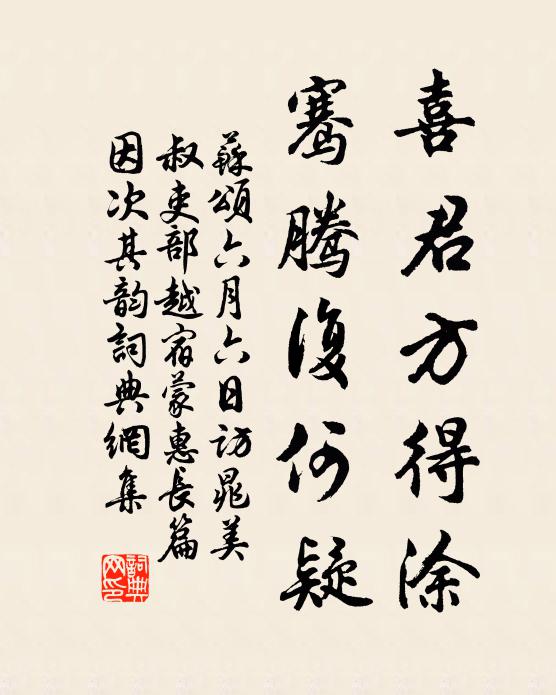 喜君方得涂
骞腾復何疑
蘇頌六月六日訪晁美
叔吏部越宿蒙惠長篇
因次其韵詞典網集
詞典
网印